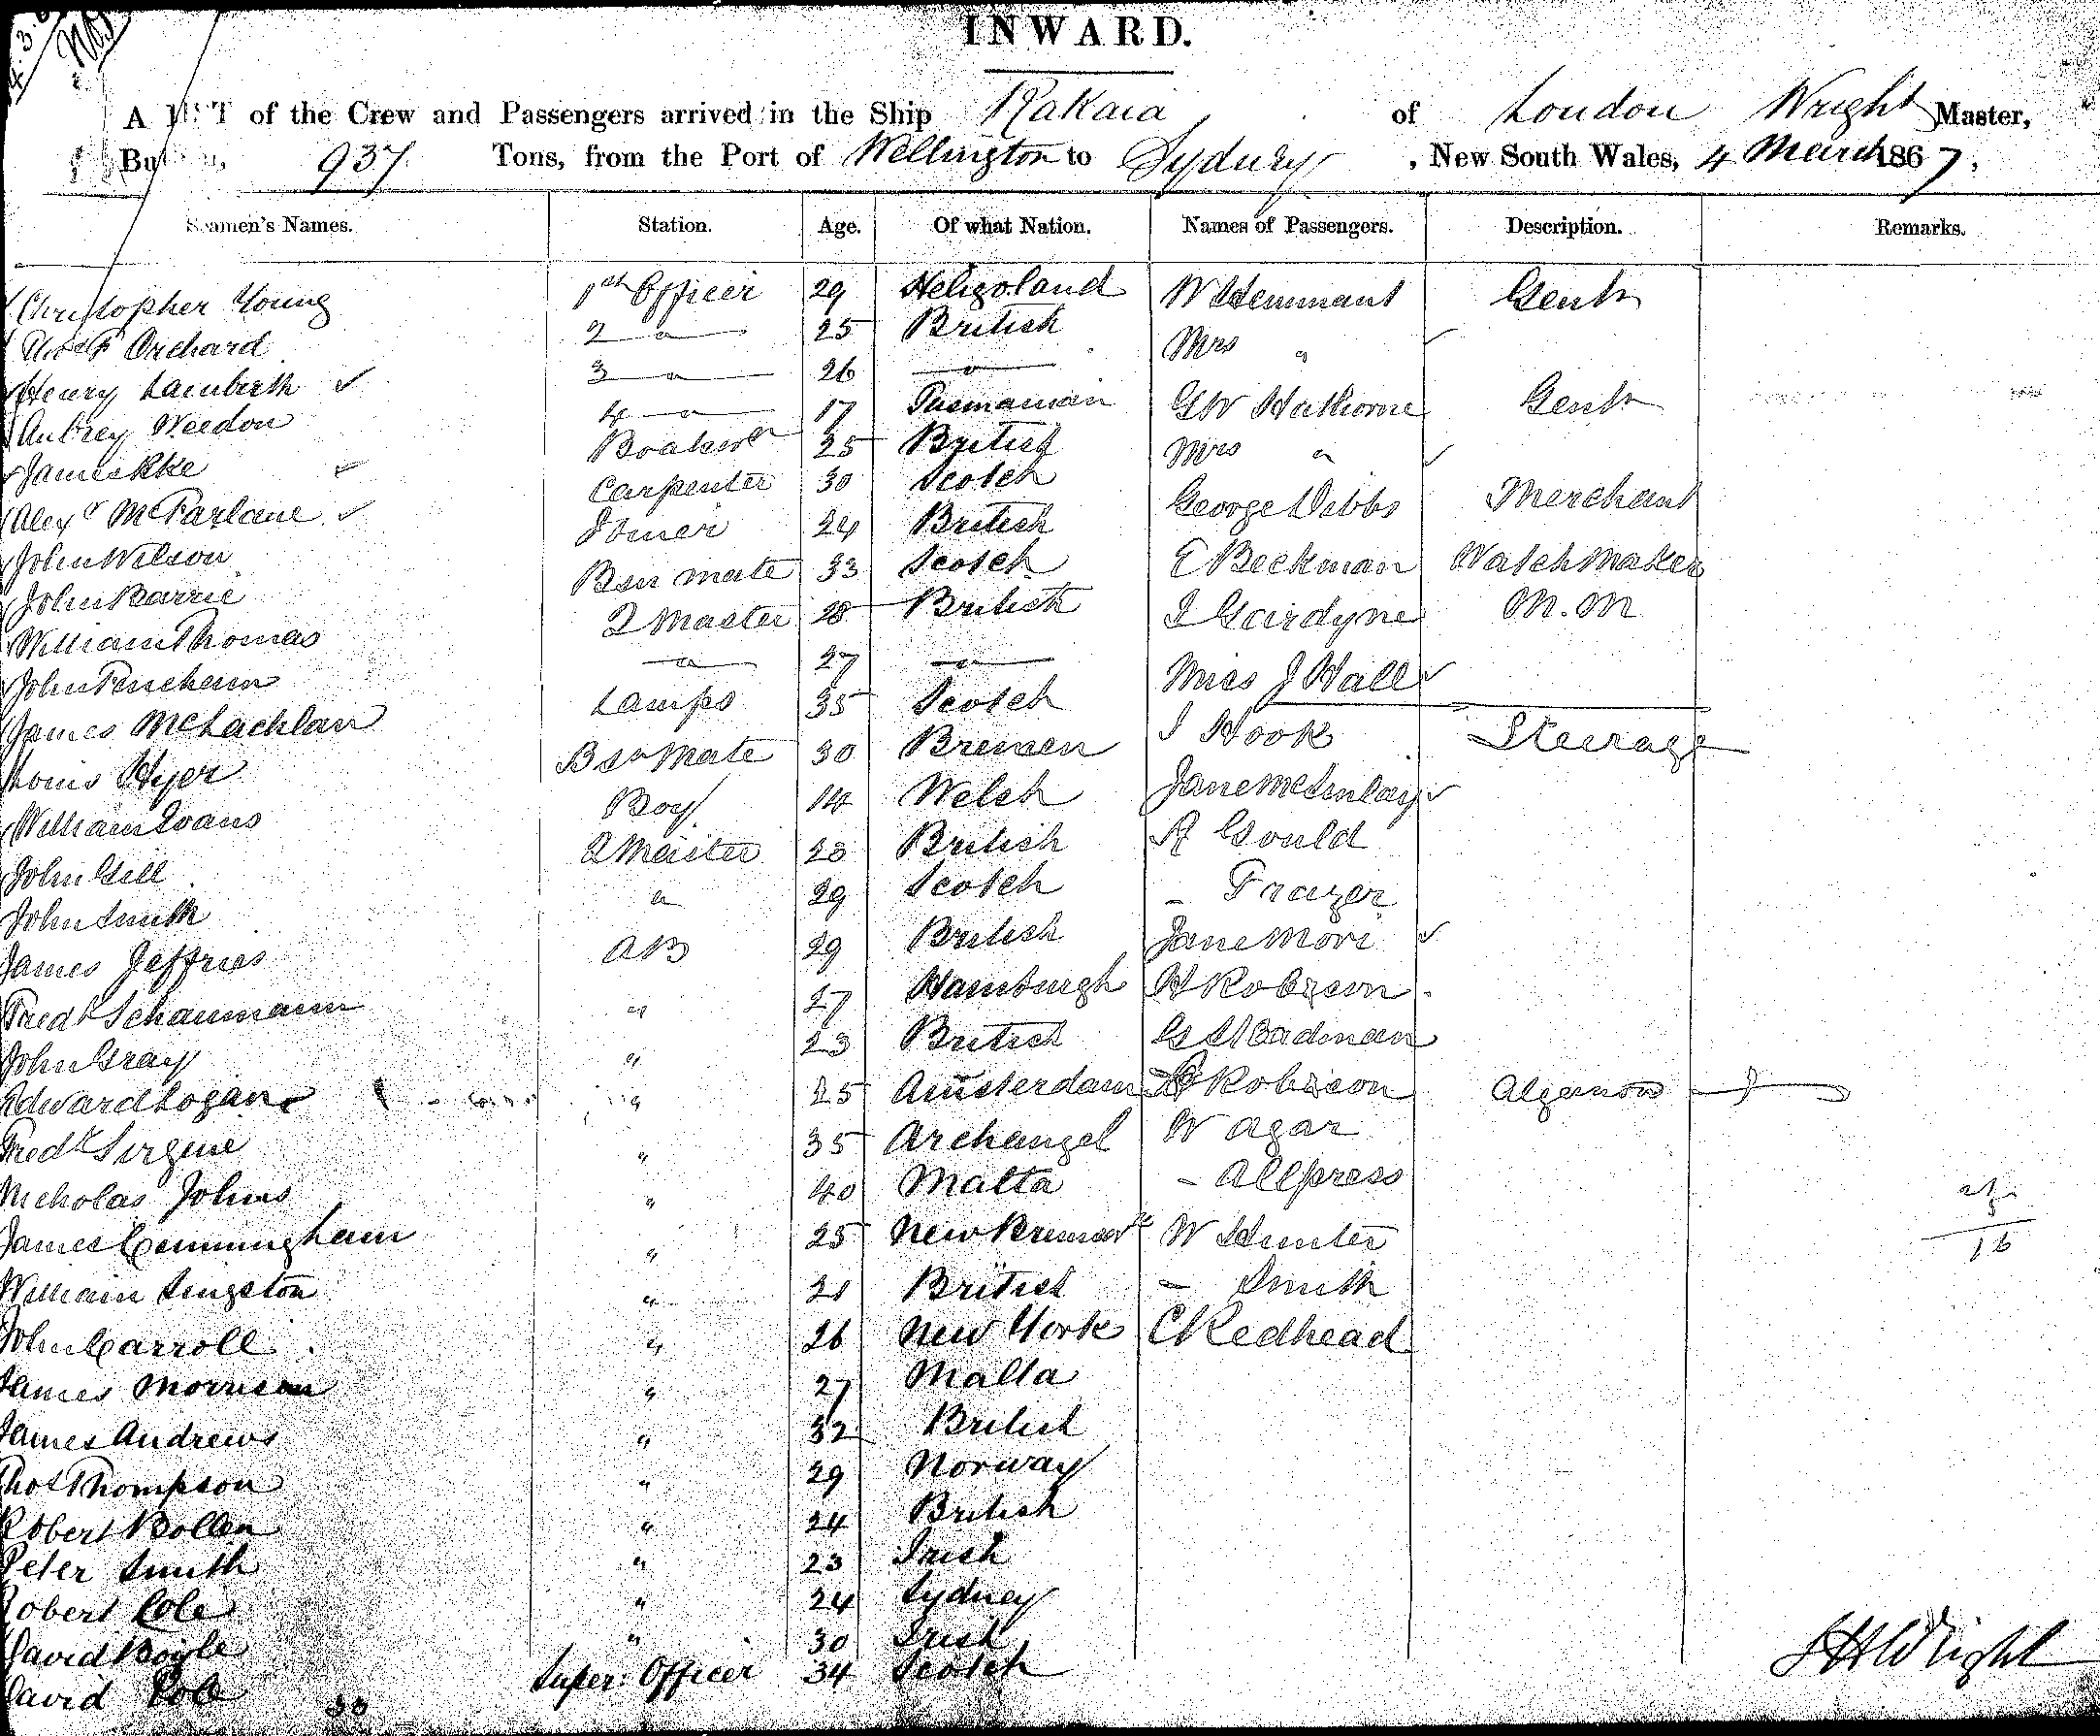 INWARD.
A LIST of the Crew and Passengers arrived in the Ship Rakaia of London Wright Master,
937 Tons, from the Port of Wellington to Sydney, New South Wales, 4 March 1867,
Seamen's Names. Station. Age. Of what Nation. Names of Passengers. Description. Remarks.
Christopher Young 1st Officer 29 Heligoland W Hemmant Gentn
Orchard 2 " 25 British Mrs "
Henry Lamberth 3 " 26 " G W Hathorne Gentn
Aubrey Weedon 4 " 17 Tasmanian Mrs "
James Pike Boatswn 25 British George Dibbs Merchant
Alexr McFarlane Carpenter 30 Scotch E Beckman Watchmaker
John Wilson Joiner 24 British J Gairdyne M.M
John Barrie Bsn mate 33 Scotch Miss J Hall
William Thomas Q Master 28 British J Hook Steerage
John " 27 " Jane McInlay
James McLachlan Lamps 35 Scotch A Gould
Louis Hyer Bsn Mate 30 Bremen - Frazer
William Evans Boy 14 Welsh Jane More
John Gill Q Master 23 British H Robson
John Smith " 29 Scotch G Steadman
James Jeffries AB 29 British Robison Algernon
Fredk Schaumann " 27 Hamburgh W Agar
John Gray " 23 British - Allpress
Edward Logan " 25 Amsterdam W Hunter
Fredk Sirgine " 35 Archangel - Smith
Nicholas Johns " 40 Malta C Redhead
James Cunningham " 25 New Brunswk
William Singston " 21 British
John Carroll " 26 New York
James Morrison " 27 Malta
James Andrews " 32 British
Thos Thompson " 29 Norway
Robert Bollen " 24 British
Peter Smith " 23 Irish
Robert Cole " 24 Sydney
David Boyle " 30 Irish
David Super: Officer 34 Scotch
33
16
J H Wright